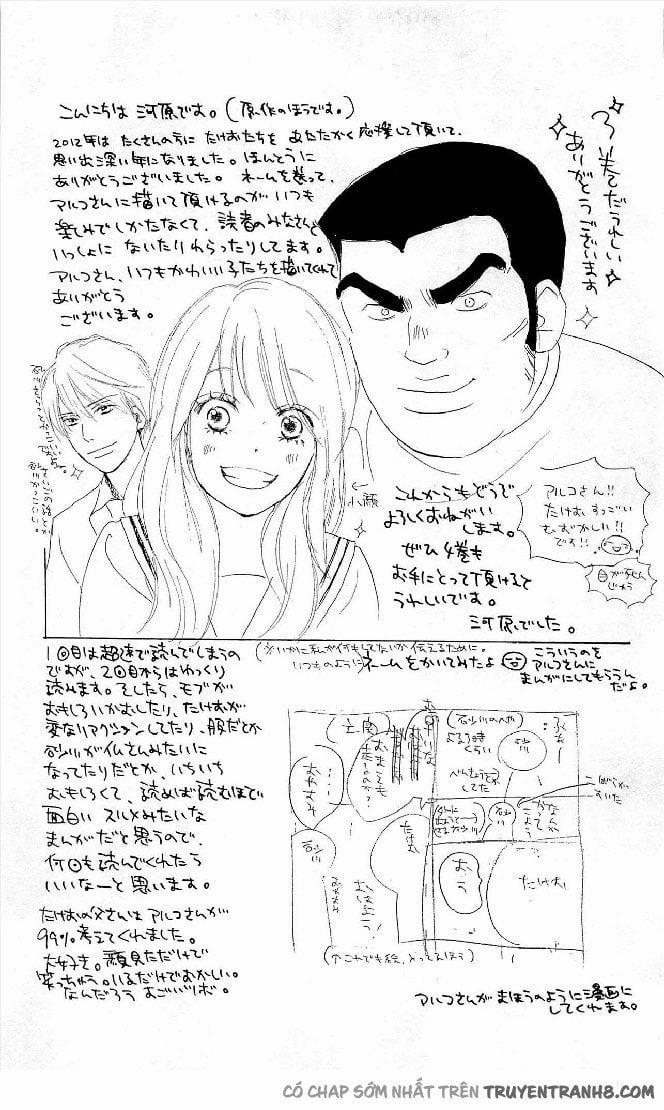 こんにちは 河原です。(原作のほうです。)
2012年は たくさんの方に たけおたちを あたたかく応援して頂いて、
思い出深い年になりました。ほんとうに
ありがとうございました。 ネームを送って、
アルコさんに描いて頂けるのがいつも
楽しみでしかたなくて、読者のみなさんと
いっしょに ないたりわらったりしてます。
アルコさん、いつもかわいい子たちを描いてくれて
ありがとう
ございます。
3巻でだうれしい
ありがとう
ございます
←
小顔
アルコさん!!
たけお すっごい
むずかしい!!
です!!
これからもどうぞ
よろしくおねがい
します。
ぜひ 4巻も
お手にとって頂けると
うれしいです。
河原でした。
1回目は超速で読んでしまうの
ですが、2回目からはゆっくり
読みます。そしたら、モブが
おもしろいかおしたり、たけおが
変なリアクションしてたり、服だとか
砂川が仏さんみたいに
なってたりだとか、いちいち
おもしろくて、読めば読むほど
面白い スルメみたいな
まんがだと思うので、
何回も読んでくれたら
いいなーと思います。
たけおの父さんは アルコさんが
99%考えてくれました。
大好き。顔見ただけで
笑っちゃう。いるだけでおかしい。
いつものように ネームをかいてみたよ
こういうのを
アルコさんに
まんがにしてもらうん
だよ。
砂川のへや
よる9時
くらい
砂川
たけお
おう
たけお
おはよう!
アルコさんが まほうのように漫画に
してくれます。
CÓ CHAP SỚM NHẤT TRÊN TRUYENTRANH8.COM